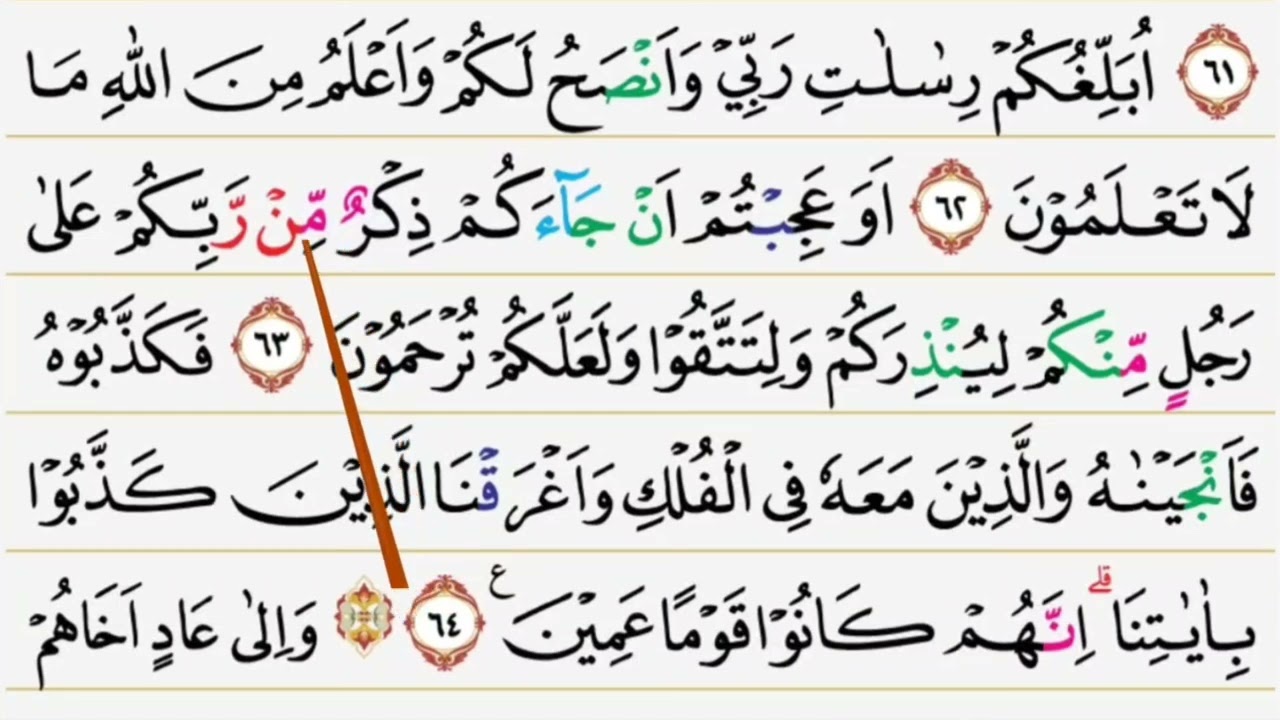 ٦١ اُبَلِّغُكُمْ رِسٰلٰتِ رَبِّيْ وَاَنْصَحُ لَكُمْ وَاَعْلَمُ مِنَ اللّٰهِ مَا
لَا تَعْلَمُوْنَ ٦٢ اَوَعَجِبْتُمْ اَنْ جَاۤءَكُمْ ذِكْرٌ مِّنْ رَّبِّكُمْ عَلٰى
رَجُلٍ مِّنْكُمْ لِيُنْذِرَكُمْ وَلِتَتَّقُوْا وَلَعَلَّكُمْ تُرْحَمُوْنَ ٦٣ فَكَذَّبُوْهُ
فَاَنْجَيْنٰهُ وَالَّذِيْنَ مَعَهٗ فِى الْفُلْكِ وَاَغْرَقْنَا الَّذِيْنَ كَذَّبُوْا
بِاٰيٰتِنَاۗ اِنَّهُمْ كَانُوْا قَوْمًا عَمِيْنَ ع ٦٤ وَاِلٰى عَادٍ اَخَاهُمْ